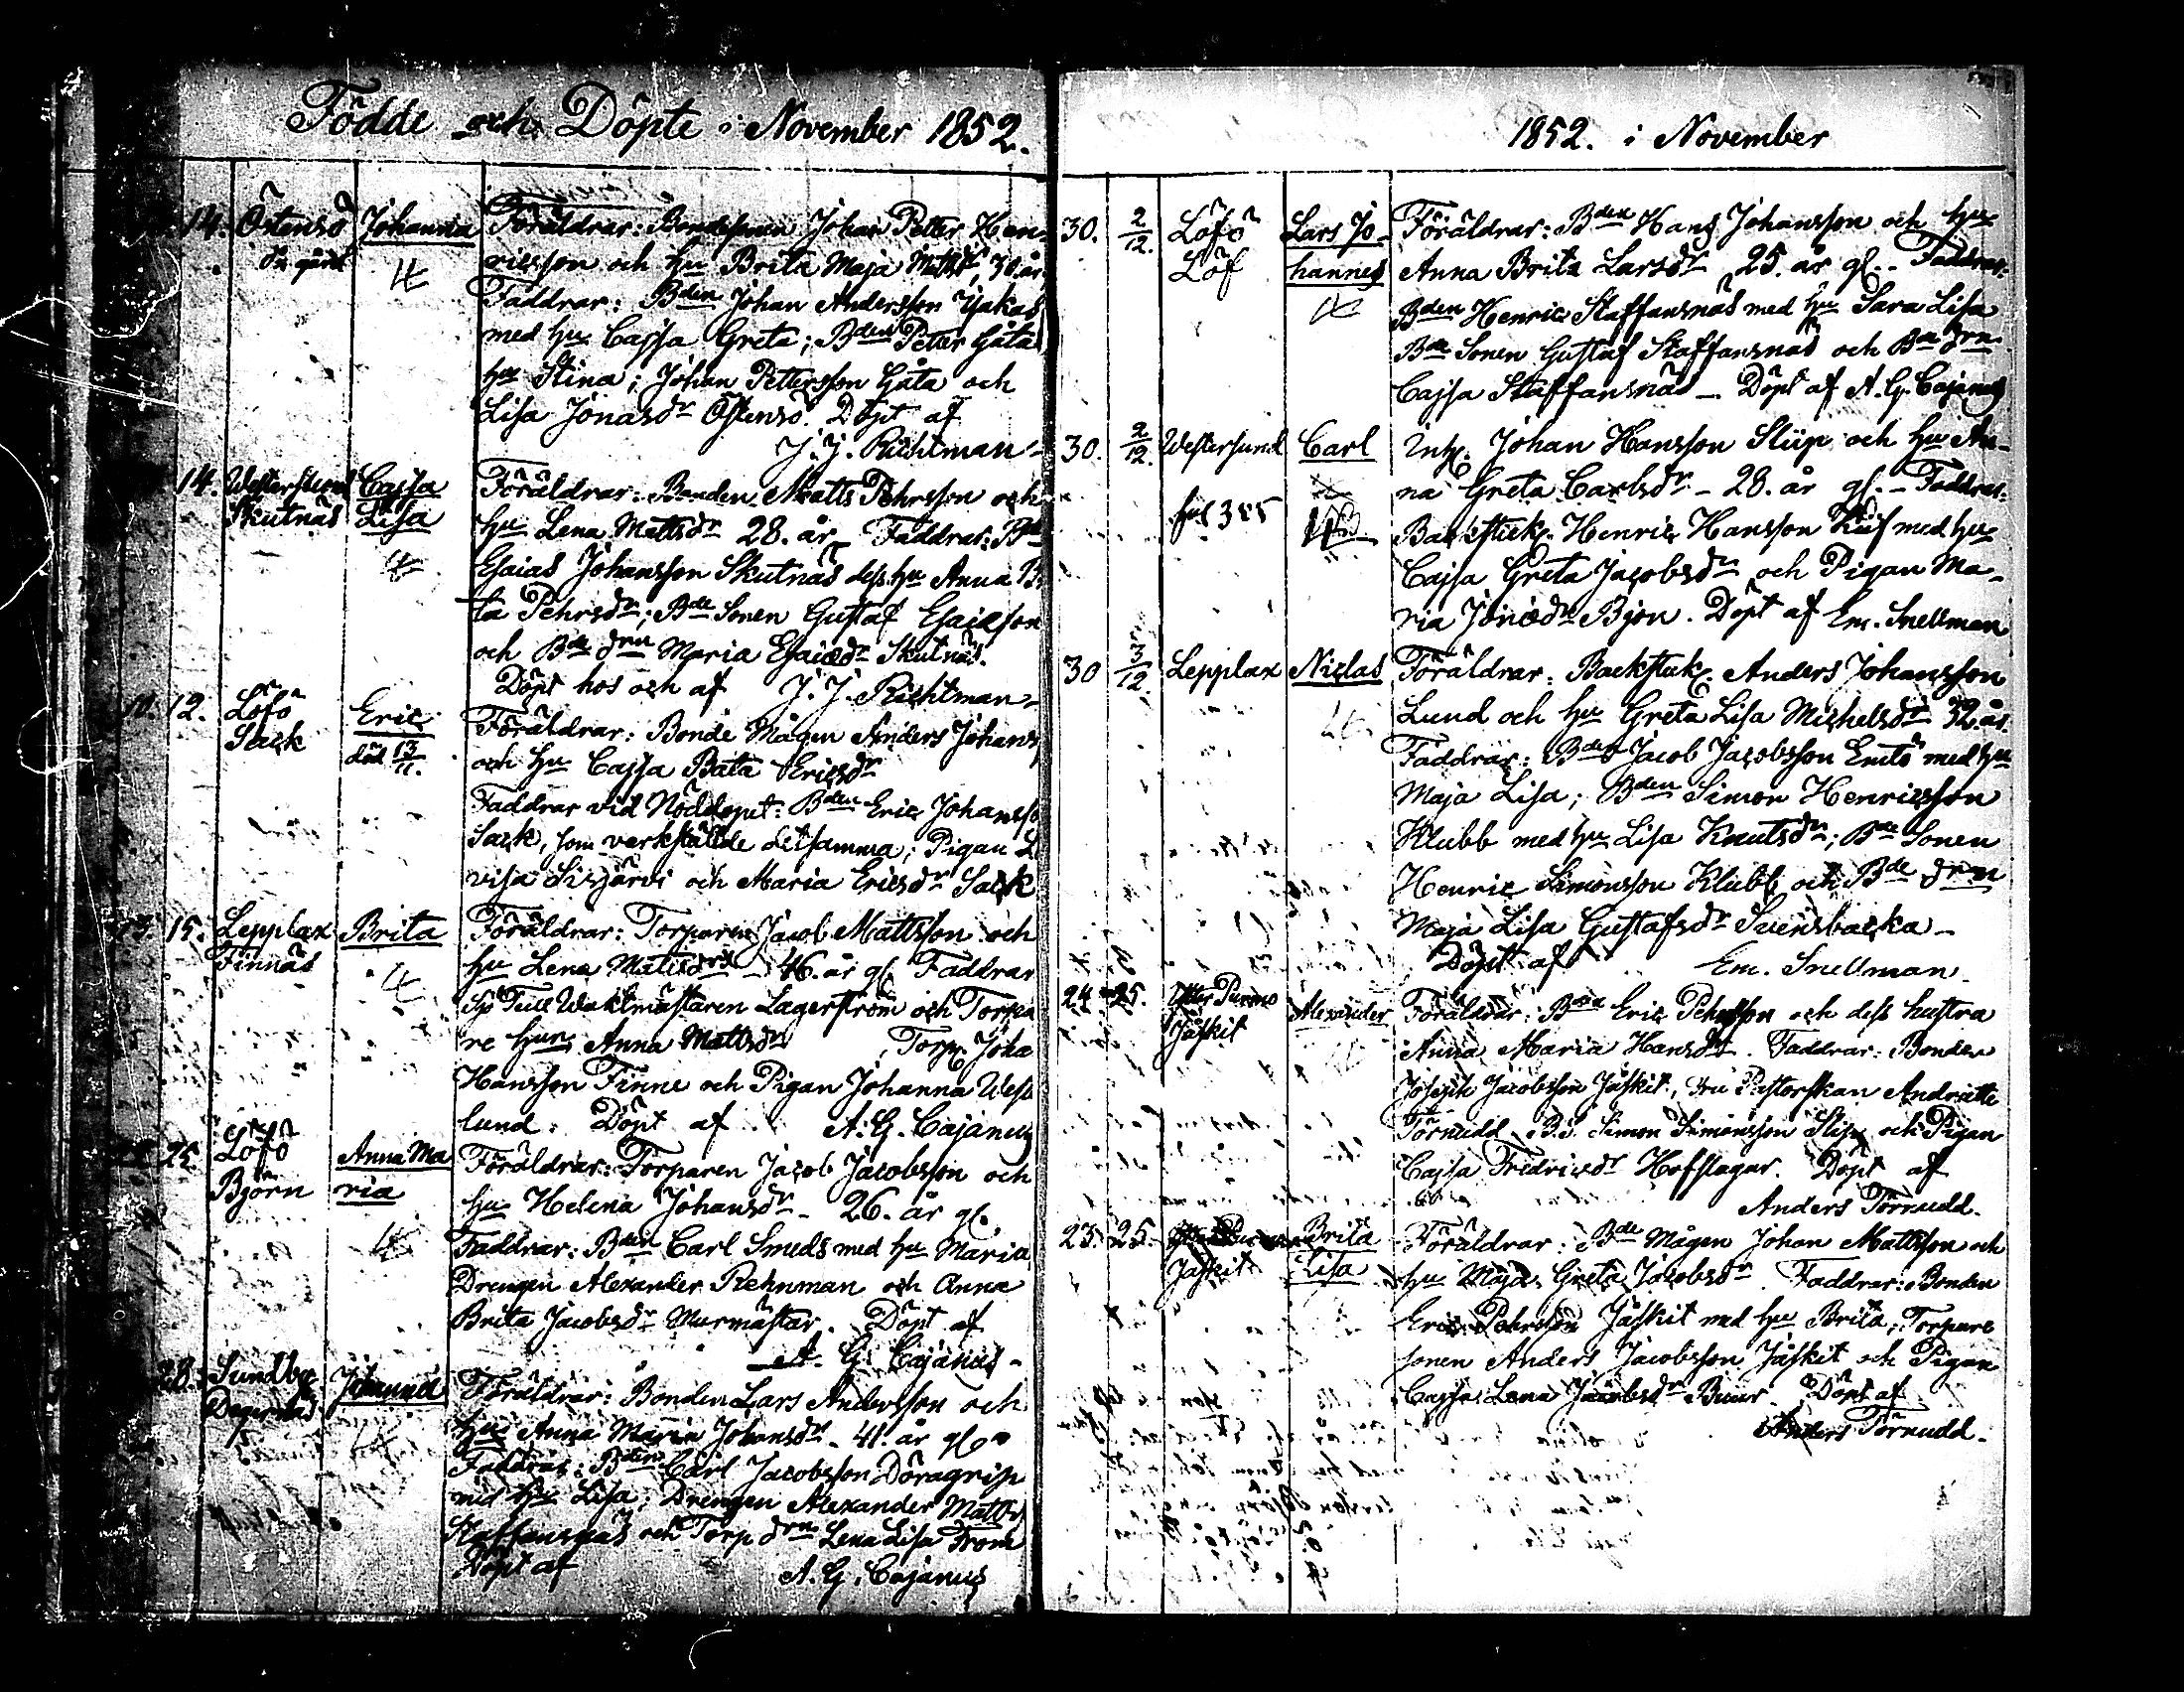 Födde och Döpte i November 1852.
14. Östensö Johanna Föräldrar: Bondesonen Johan Petter Hen-
ricsson och hu Brita Maja Mattsdr, 30. år
Faddrar: Bden Johan Andersson
med hu Cajsa Greta; Bden Petter Gåta
hu Stina; Johan Pettersson Gåta och
Lisa Jonasdr Östensö. Döpt af
J. J. Richtman-
14. Westersund Cajsa Föräldrar: Bonden Matts Pehrsson och
Skutnäs Lisa hu Lena Mattsdr 28. år - Faddrar:
Esaias Johansson Skutnäs dess hu Anna B
ta Pehrsdr; Bde Sonen Gustaf Esaiasson
och Bde drn Maria Esaiædr Skutnäs.
Döpt hos och af J. J. Richtman-
12. Löfö Eric Föräldrar: Bonde Mågen Anders Johans
Sack död 13/11. och hu Cajsa Bata Ericsdr
Faddrar vid Nöddopet: Bden Eric Johansso
Sack, som verkställde detsamma; Pigan L
visa och Maria Ericsdr Sack
15. Lepplax Brita Föräldrar: Torparen Jacob Mattsson och
Finnäs hu Lena Mattsdr - 46. år gl. Faddrar
Sjö Tull Waktmästaren Lagerström och Torpa
re hun Anna Mattsdr Torp. Joha
Hansson Finne och Pigan Johanna West
lund. Döpt af A. G. Cajanus
25 Löfö Anna Ma Föräldrar: Torparen Jacob Jacobsson och
Björn ria hu Helena Johansdr - 26. år gl.
Faddrar: Bden Carl Smeds med hu Maria
Drengen Alexander Rehnman och Anna
Brita Jacobsdr Murmästar. Döpt af
A. G. Cajanus-
28. Sundby Johanna Föräldrar: Bonden Lars Andersson och
Degernäs hu Anna Maria Johansdr - 41. år gl.
Faddrar: Bden Carl Jacobsson Döragrip
med hu Lisa; Drengen Alexander Matts
Staffansnäs och Torp drn Lena Lisa From
Döpt af A. G. Cajanus
1852. i November
30. 2/12. Löfö Lars Jo- Föräldrar: Bden Hans Johansson och hu
Löf hannes Anna Brita Larsdr 25. år gl. - Faddrar:
Bden Henric Staffansnäs med hu Sara Lisa
Bde Sonen Gustaf Staffansnäs och Bde drn
Cajsa Staffansnäs - Döpt af A. G. Cajanus
30. 2/12. Westersund Carl Inh. Johan Hansson Slip och hu An-
na Greta Carlsdr - 28. år gl. - Faddrar:
fol 385 Backstuk. Henric Hansson med hu
Cajsa Greta Jacobsdr och Pigan Ma-
ria Björn. Döpt af Em. Snellman
30 3/12. Lepplax Niclas Föräldrar: Backstuk. Anders Johansson
Lund och hu Greta Lisa Michelsdr 32. år.
Faddrar: Bden Jacob Jacobsson Emto med hu
Maja Lisa; Bden Simon Henricsson
Klubb med hu Lisa Knutsdr; Bde Sonen
Henric Simonsson Klubb och Bde drn
Maja Lisa Gustafsdr Svensbacka -
Döpt af Em. Snellman
24 25. Ytter Purmo Alexander Föräldrar: Bden Eric Pehrsson och dess hustra
Jåfkit Anna Maria Hansdr. Faddrar: Bonden
Joseph Jacobsson Jåfkit, Fru Pastorskan Andriette
Törnudd B.S. Simon Simonsson Slip och Pigan
Cajsa Fredricsdr Hofslagar. Döpt af
Anders Törnudd.
23. 25. Ytter Purmo Brita Föräldrar: Bde Mågen Johan Mattsson och
Jåfkit Lisa hu Maja Greta Jacobsdr. Faddrar: Bonden
Eric Pehrsson Jåfkit med hu Brita; Torpare
sonen Anders Jacobsson Jåfkit och Pigan
Cajsa Lena Jacobsdr. Döpt af
Anders Törnudd.